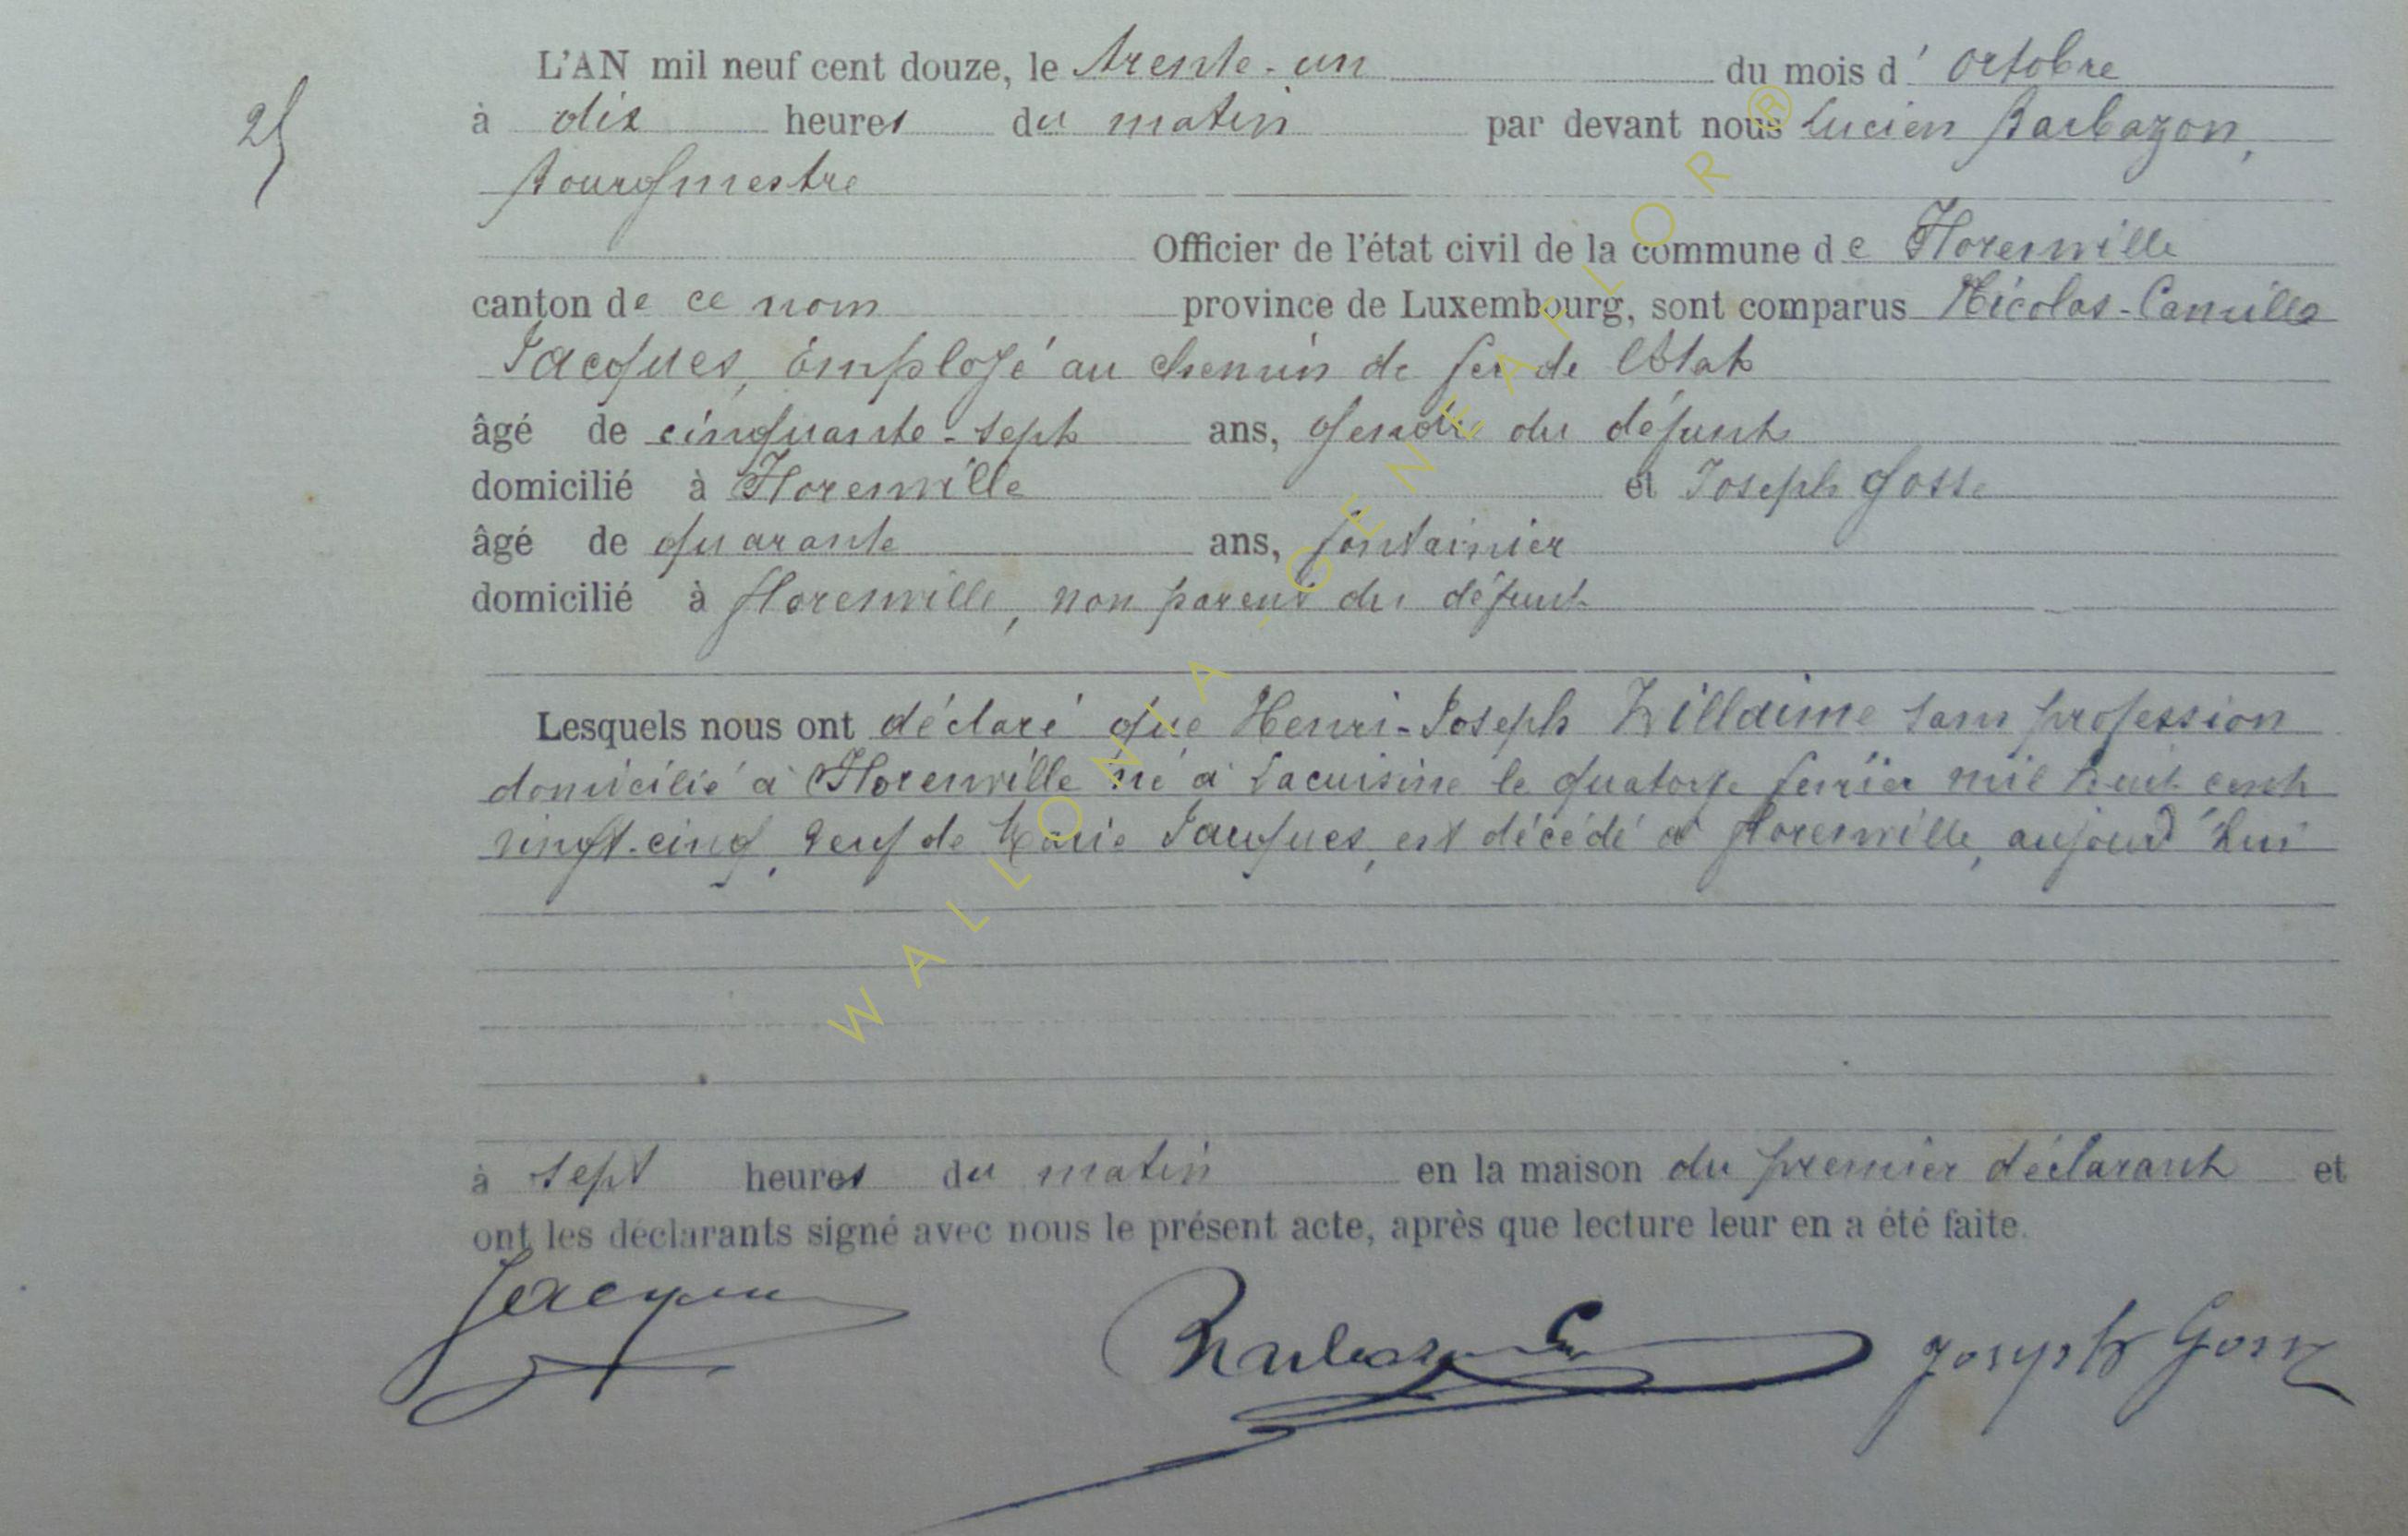 L'AN mil neuf cent douze, le trente-un du mois d'octobre
25
à dix heures du matin par devant nous Lucien Barbazon,
Bourgmestre
Officier de l'état civil de la commune de Florenville
canton de ce nom province de Luxembourg, sont comparus Nicolas-Camille
Jacques, employé au chemin de fer de l'Etat
âgé de cinquante-sept ans, gendre du défunt
domicilié à Florenville et Joseph Gosse
âgé de quarante ans, fontainier
domicilié à Florenville, non parent du défunt
Lesquels nous ont déclaré que Henri-Joseph Willaime sans profession
domicilié à Florenville né à Lacuisine le quatorze février mil huit cent
vingt-cinq, veuf de Marie Jacques, est décédé à Florenville, aujourd'hui
à sept heures du matin en la maison du premier déclarant et
ont les déclarants signé avec nous le présent acte, après que lecture leur en a été faite.
Jacques Barbazon Joseph Gosse
WALLONIA-GENEAFLOR®